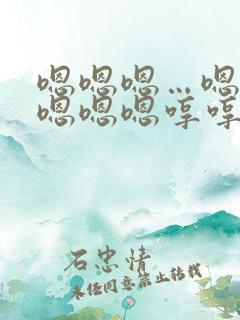 嗯嗯嗯…嗯
嗯嗯嗯哼哼
石忠情
未经同意禁止转载